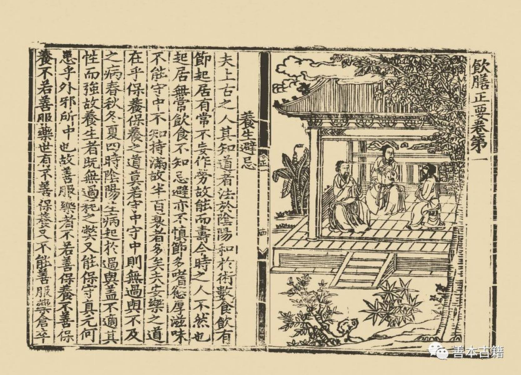 飲膳正要卷第一
養生避忌
夫上古之人其知道者法於陰陽和於術數食飲有
節起居有常不妄作勞故能而壽今時之人不然也
起居無常飲食不知忌避亦不慎節多嗜慾厚滋味
不能守中不知持滿故半百衰者多矣夫安樂之道
在乎保養保養之道莫若守中守中則無過與不及
之病春秋冬夏四時陰陽生病起於過與蓋不適其
性而強故養生者既無過耗之弊又能保守真元何
患乎外邪所中也故善服藥者不若善保養不善保
養不若善服藥世有不善保養又不能善服藥倉卒
善本古籍